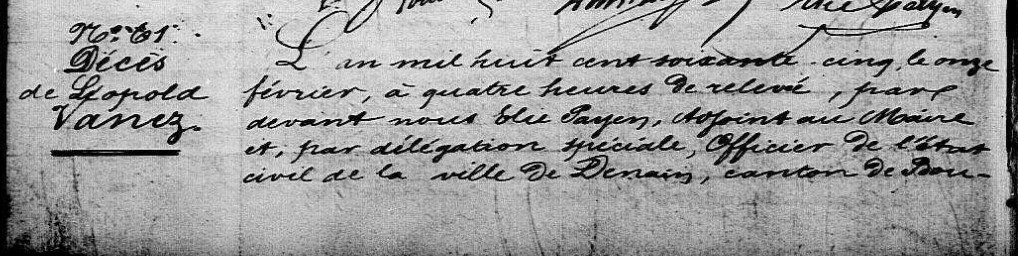 Décès
de Léopold
Vanez.
L'an mil huit cent soixante-cinq, le onze
février, à quatre heures de relevé, par
devant nous Elie Payen, Adjoint au Maire
et, par délégation spéciale, Officier de l'état
civil de la ville de Denain, canton de Bou-